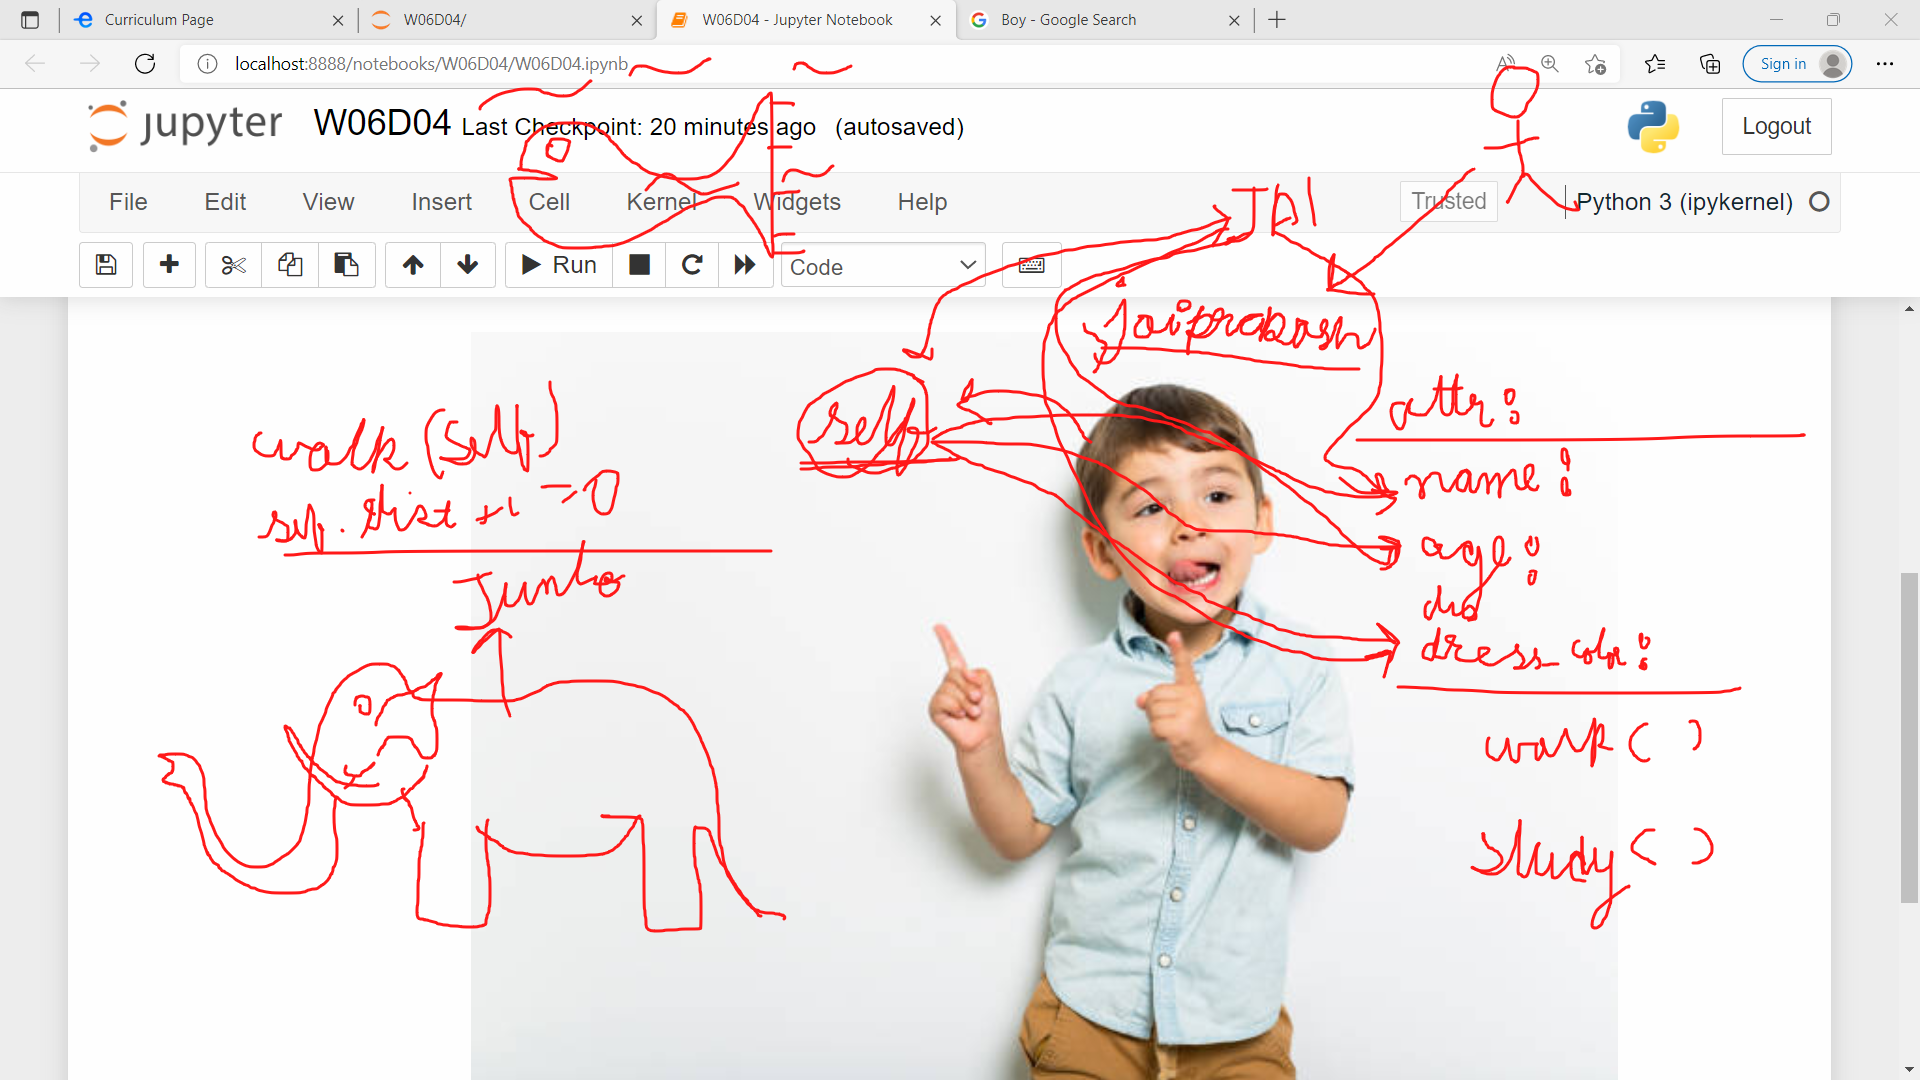 Curriculum Page
W06D04/
W06D04 - Jupyter Notebook
Boy - Google Search
localhost:8888/notebooks/W06D04/W06D04.ipynb
Sign in
jupyter W06D04 Last Checkpoint: 20 minutes ago (autosaved)
Logout
File Edit View Insert Cell Kernel Widgets Help
Trusted
Python 3 (ipykernel)
Run
Code
JAI
Jaiprakash
self
attr:
name:
age:
dre
dress_color:
walk( )
study( )
walk(self)
self.dist +1 =0
Jumbo